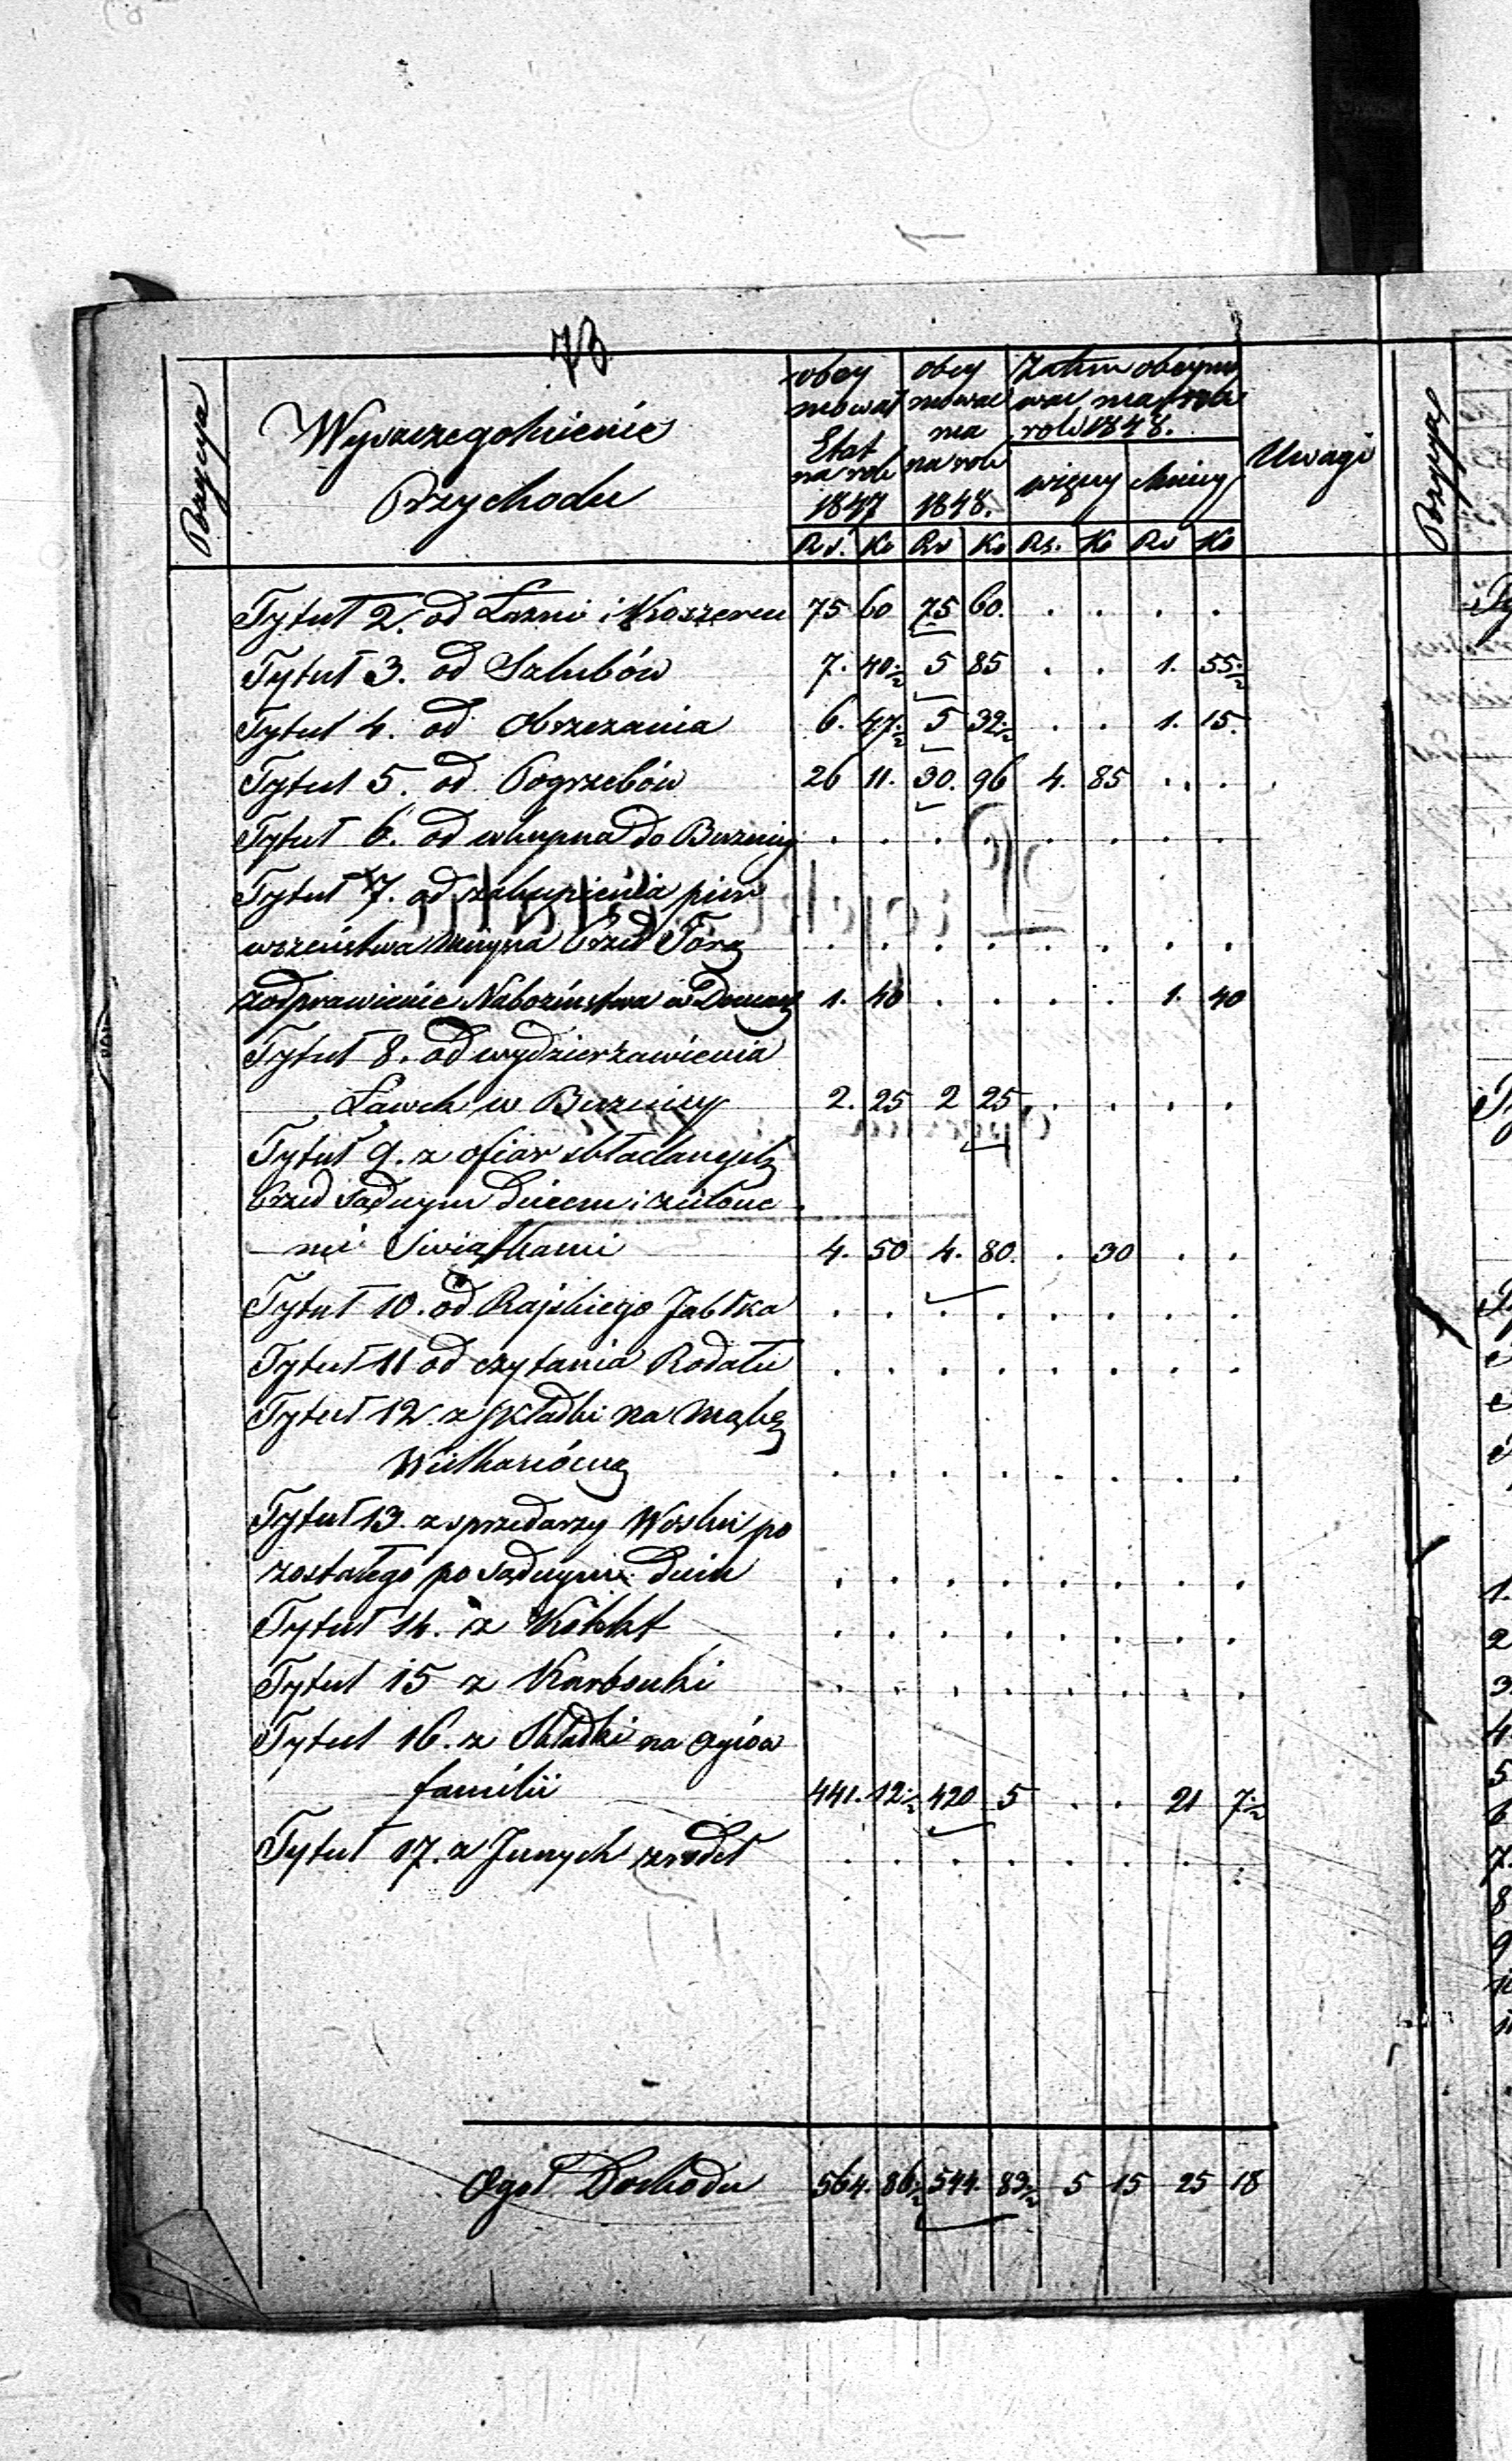 73
Pozycya
Wyszczegolnienie
Przychodu
obey
mował
Etat
na rok
1847
obey
mować
ma
na rok
1848.
Zatem obeymo
wać ma
rok 1848.
więcey
Mniey
Uwagi
Rs. Ko Rs Ko Rs. Ko Rs Ko
Tytuł 2. od Łazni i Koszeren 75 60 75 60. . . . .
Tytuł 3. od Szlubów 7. 40½ 5 85 . . 1. 55½
Tytuł 4. od Obrzezania 6. 47½ 5 32½ . . 1. 15.
Tytuł 5. od Pogrzebów 26 11. 30. 96 4. 85 . .
Tytuł 6. od wkupna do Bużnicy . . . . . . . .
Tytuł 7. od zakupienia pier
wszeństwa Przed Torą . . . . . . . .
za odprawienie Nabożeństwa w Domach 1. 40 . . . . 1. 40
Tytuł 8. od wydzierżawienia
Ławek w Buznicy 2. 25 2 25 . . . .
Tytuł 9. z ofiar składanych
Przed Sądnym Dniem i zielone
mi Swiątkami 4. 50 4. 80. . 30 . .
Tytuł 10. od Rajskiego Jabłka . . . . . . . .
Tytuł 11 od czytania Rodału . . . . . . . .
Tytuł 12. z składki na Mąkę
Wielkanócną . . . . . . . .
Tytuł 13. z sprzedarzy Wosku po
zostałego po sądnym Dniu . . . . . . . .
Tytuł 14. z . . . . . . . .
Tytuł 15 z Karbonki . . . . . . . .
Tytuł 16. z Składki na
familii 441. 12½ 420 5 . . 21 7½
Tytuł 17. z Jnnych zrodeł . . . . . . . .
Ogoł Dochodu 564. 86½ 544. 83½ 5 15 25 18
Pozycya